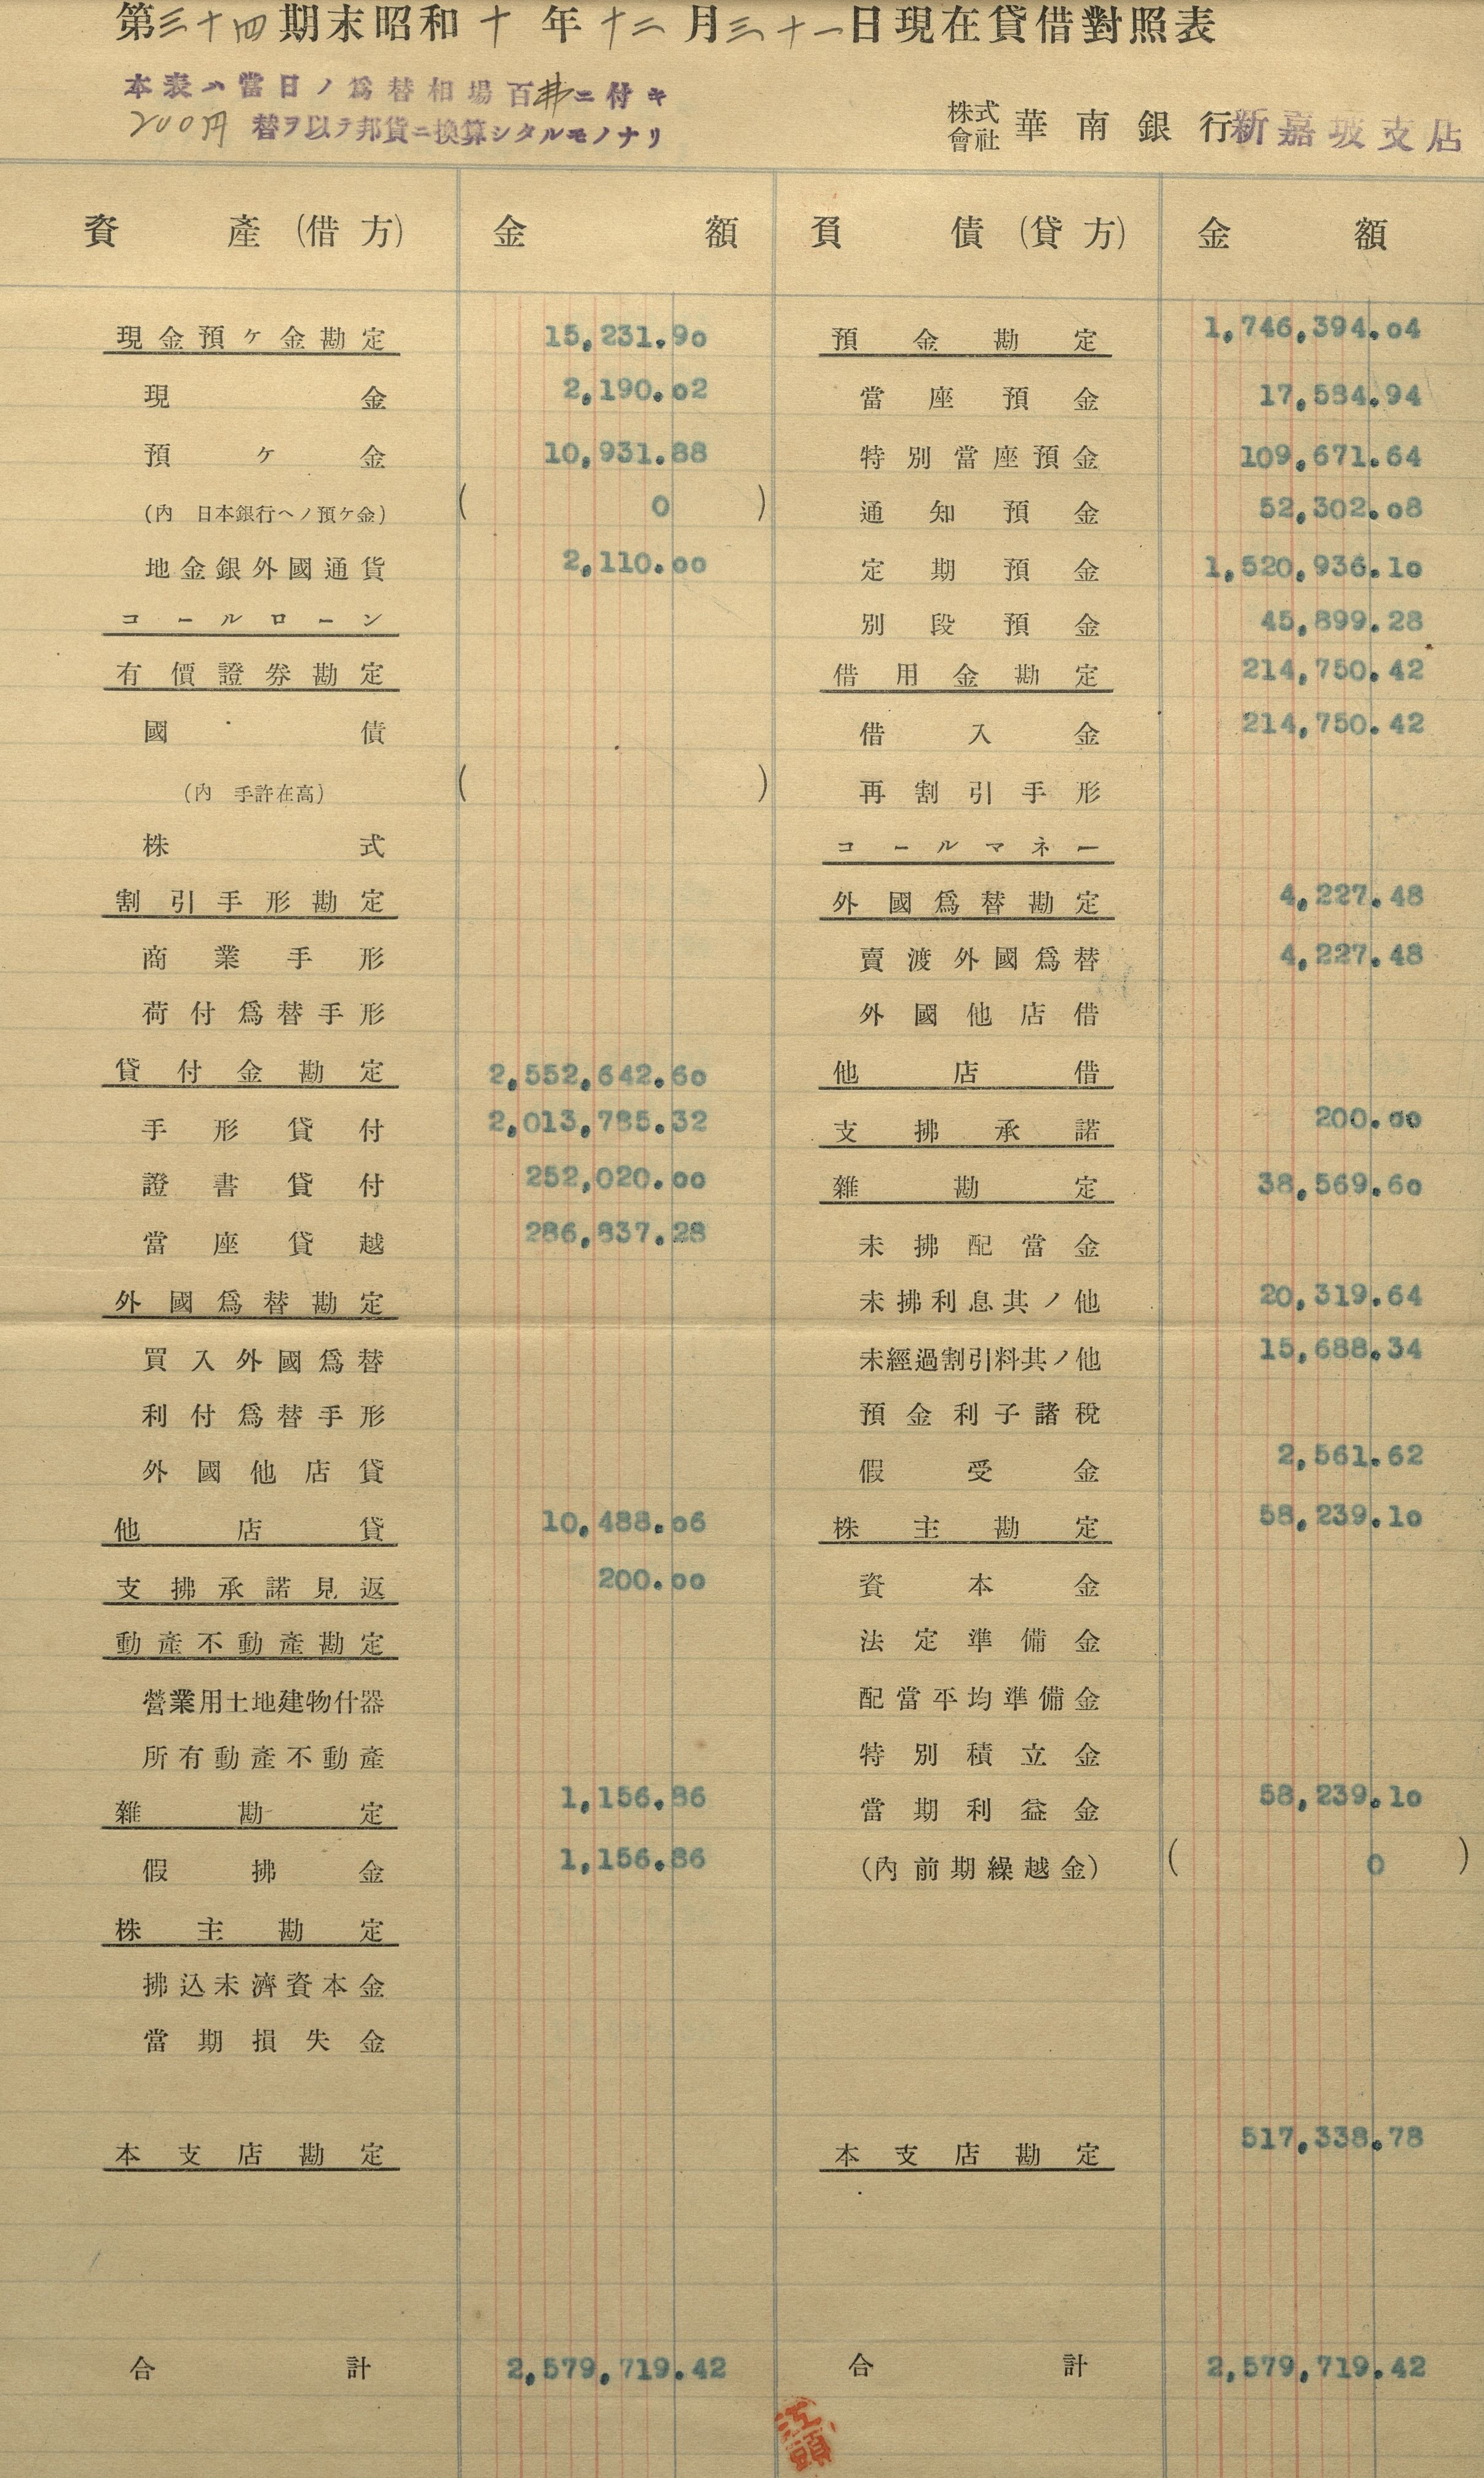 第三十四期末昭和十年十二月三十一日現在貸借對照表
本表ハ當日ノ爲替相場百弗ニ付キ
200円 替ヲ以テ邦貨ニ換算シタルモノナリ
株式會社 華南銀行新嘉坡支店
資產(借方) 金額 負債(貸方) 金額
現金預ケ金勘定 15,231.90 預金勘定 1,746,394.04
現金 2,190.02 當座預金 17,584.94
預ケ金 10,931.88 特別當座預金 109,671.64
(內 日本銀行ヘノ預ケ金) ( 0 ) 通知預金 52,302.08
地金銀外國通貨 2,110.00 定期預金 1,520,936.10
コールローン 別段預金 45,899.28
有價證券勘定 借用金勘定 214,750.42
國債 借入金 214,750.42
(內 手許在高) ( ) 再割引手形
株式 コールマネー
割引手形勘定 外國爲替勘定 4,227.48
商業手形 賣渡外國爲替 4,227.48
荷付爲替手形 外國他店借
貸付金勘定 2,552,642.60 他店借
手形貸付 2,013,785.32 支拂承諾 200.00
證書貸付 252,020.00 雜勘定 38,569.60
當座貸越 286,837.28 未拂配當金
外國爲替勘定 未拂利息其ノ他 20,319.64
買入外國爲替 未經過割引料其ノ他 15,688.34
利付爲替手形 預金利子諸稅
外國他店貸 假受金 2,561.62
他店貸 10,488.06 株主勘定 58,239.10
支拂承諾見返 200.00 資本金
動產不動產勘定 法定準備金
營業用土地建物什器 配當平均準備金
所有動產不動產 特別積立金
雜勘定 1,156.86 當期利益金 58,239.10
假拂金 1,156.86 (內前期繰越金) ( 0 )
株主勘定
拂込未濟資本金
當期損失金
本支店勘定 本支店勘定 517,338.78
合計 2,579,719.42 合計 2,579,719.42
江頭